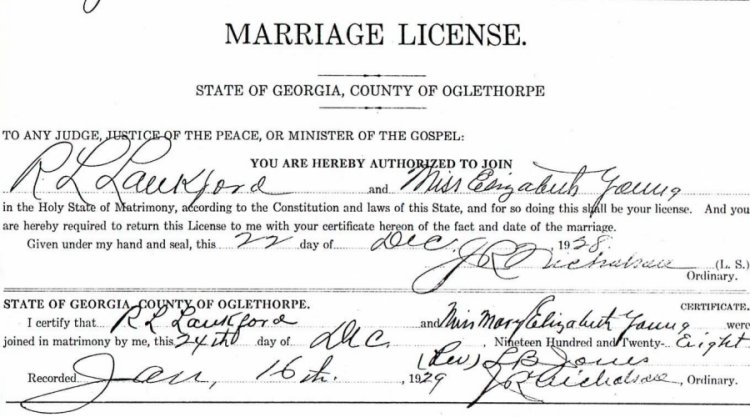 MARRIAGE LICENSE.
STATE OF GEORGIA, COUNTY OF OGLETHORPE
TO ANY JUDGE, JUSTICE OF THE PEACE, OR MINISTER OF THE GOSPEL:
YOU ARE HEREBY AUTHORIZED TO JOIN
R L Lankford and Miss Elizabeth Young
in the Holy State of Matrimony, according to the Constitution and laws of this State, and for so doing this shall be your license. And you
are hereby required to return this License to me with your certificate hereon of the fact and date of the marriage.
Given under my hand and seal, this 22 day of Dec. 1928.
J R Nicholson (L. S.)
Ordinary.
STATE OF GEORGIA, COUNTY OF OGLETHORPE. CERTIFICATE.
I certify that R L Lankford and Miss Mary Elizabeth Young were
joined in matrimony by me, this 24th day of Dec. Nineteen Hundred and Twenty-Eight
(Rev) L B Jones
Recorded Jan, 16th. 1929 J R Nicholson, Ordinary.